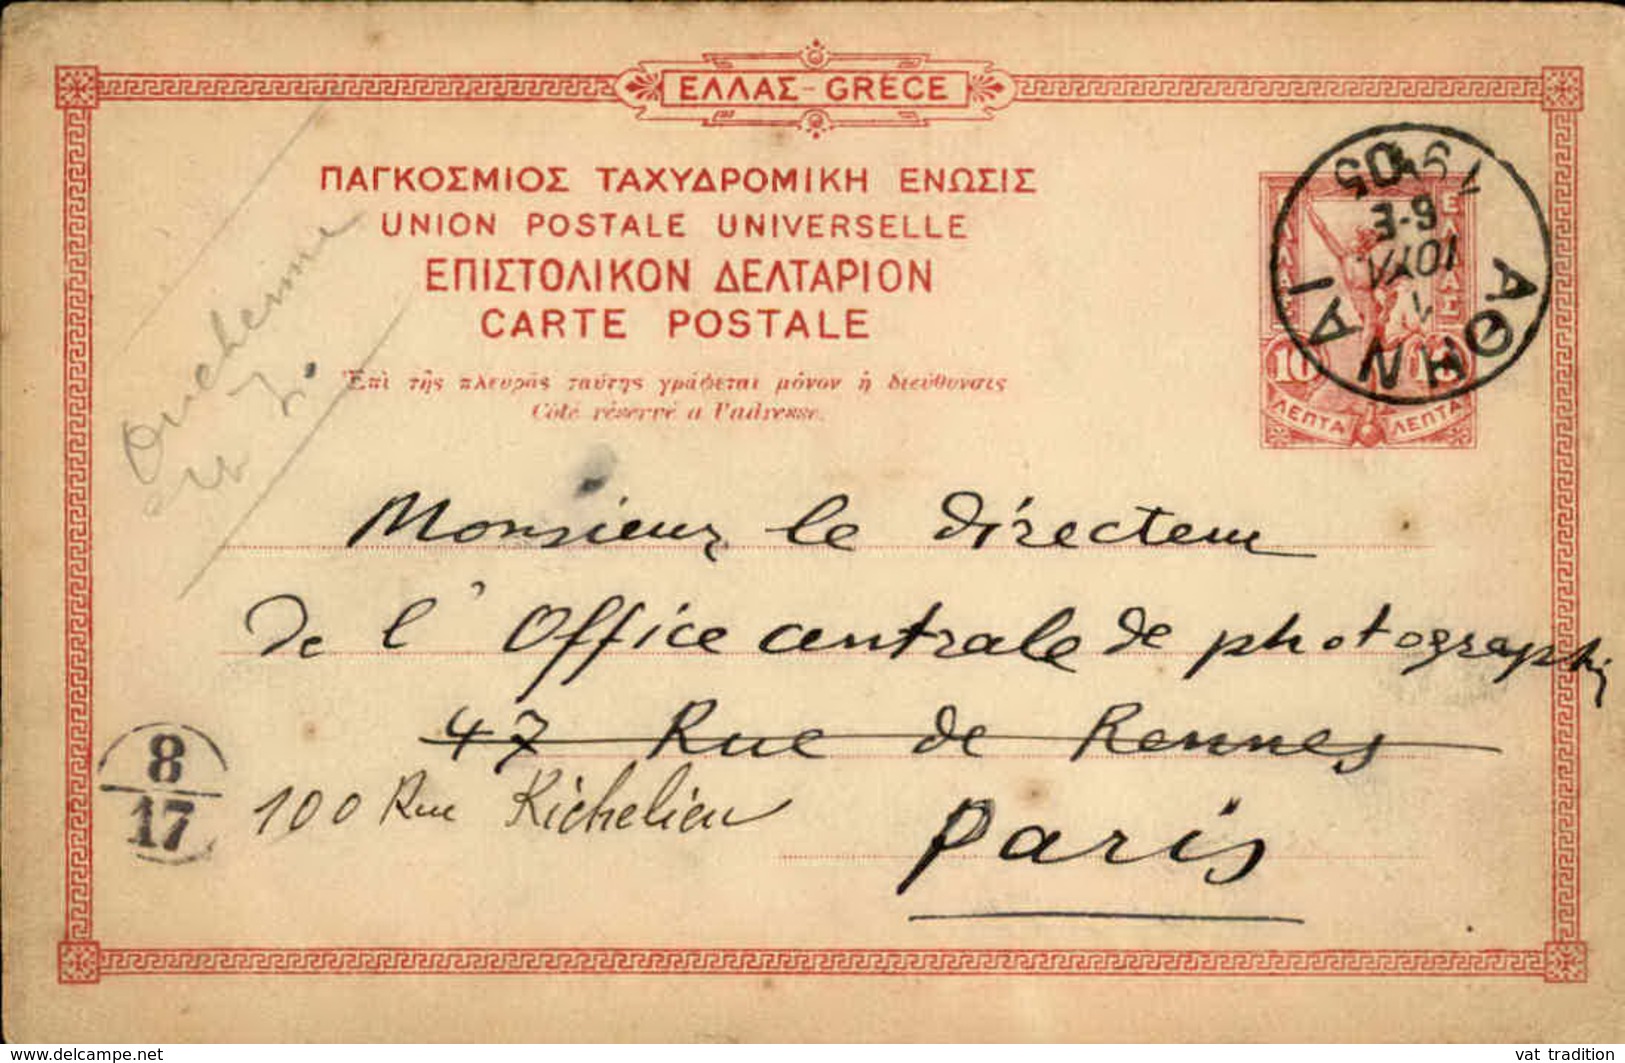 ΕΛΛΑΣ - GRÈCE
ΠΑΓΚΟΣΜΙΟΣ ΤΑΧΥΔΡΟΜΙΚΗ ΕΝΩΣΙΣ
UNION POSTALE UNIVERSELLE
ΕΠΙΣΤΟΛΙΚΟΝ ΔΕΛΤΑΡΙΟΝ
CARTE POSTALE
Ἐπὶ τῆς πλευρᾶς ταύτης γράφεται μόνον ἡ διεύθυνσις
Côté réservé a l'adresse.
ΑΘΗΝΑΙ
1
ΙΟΥΛ
6-Ε
05
ΕΛΛΑΣ
10 10
ΛΕΠΤΑ ΛΕΠΤΑ
Monsieur le directeur
de l'Office centrale de photographi
47 Rue de Rennes
100 Rue Richelieu
Paris
8
17
www.delcampe.net
vat_tradition